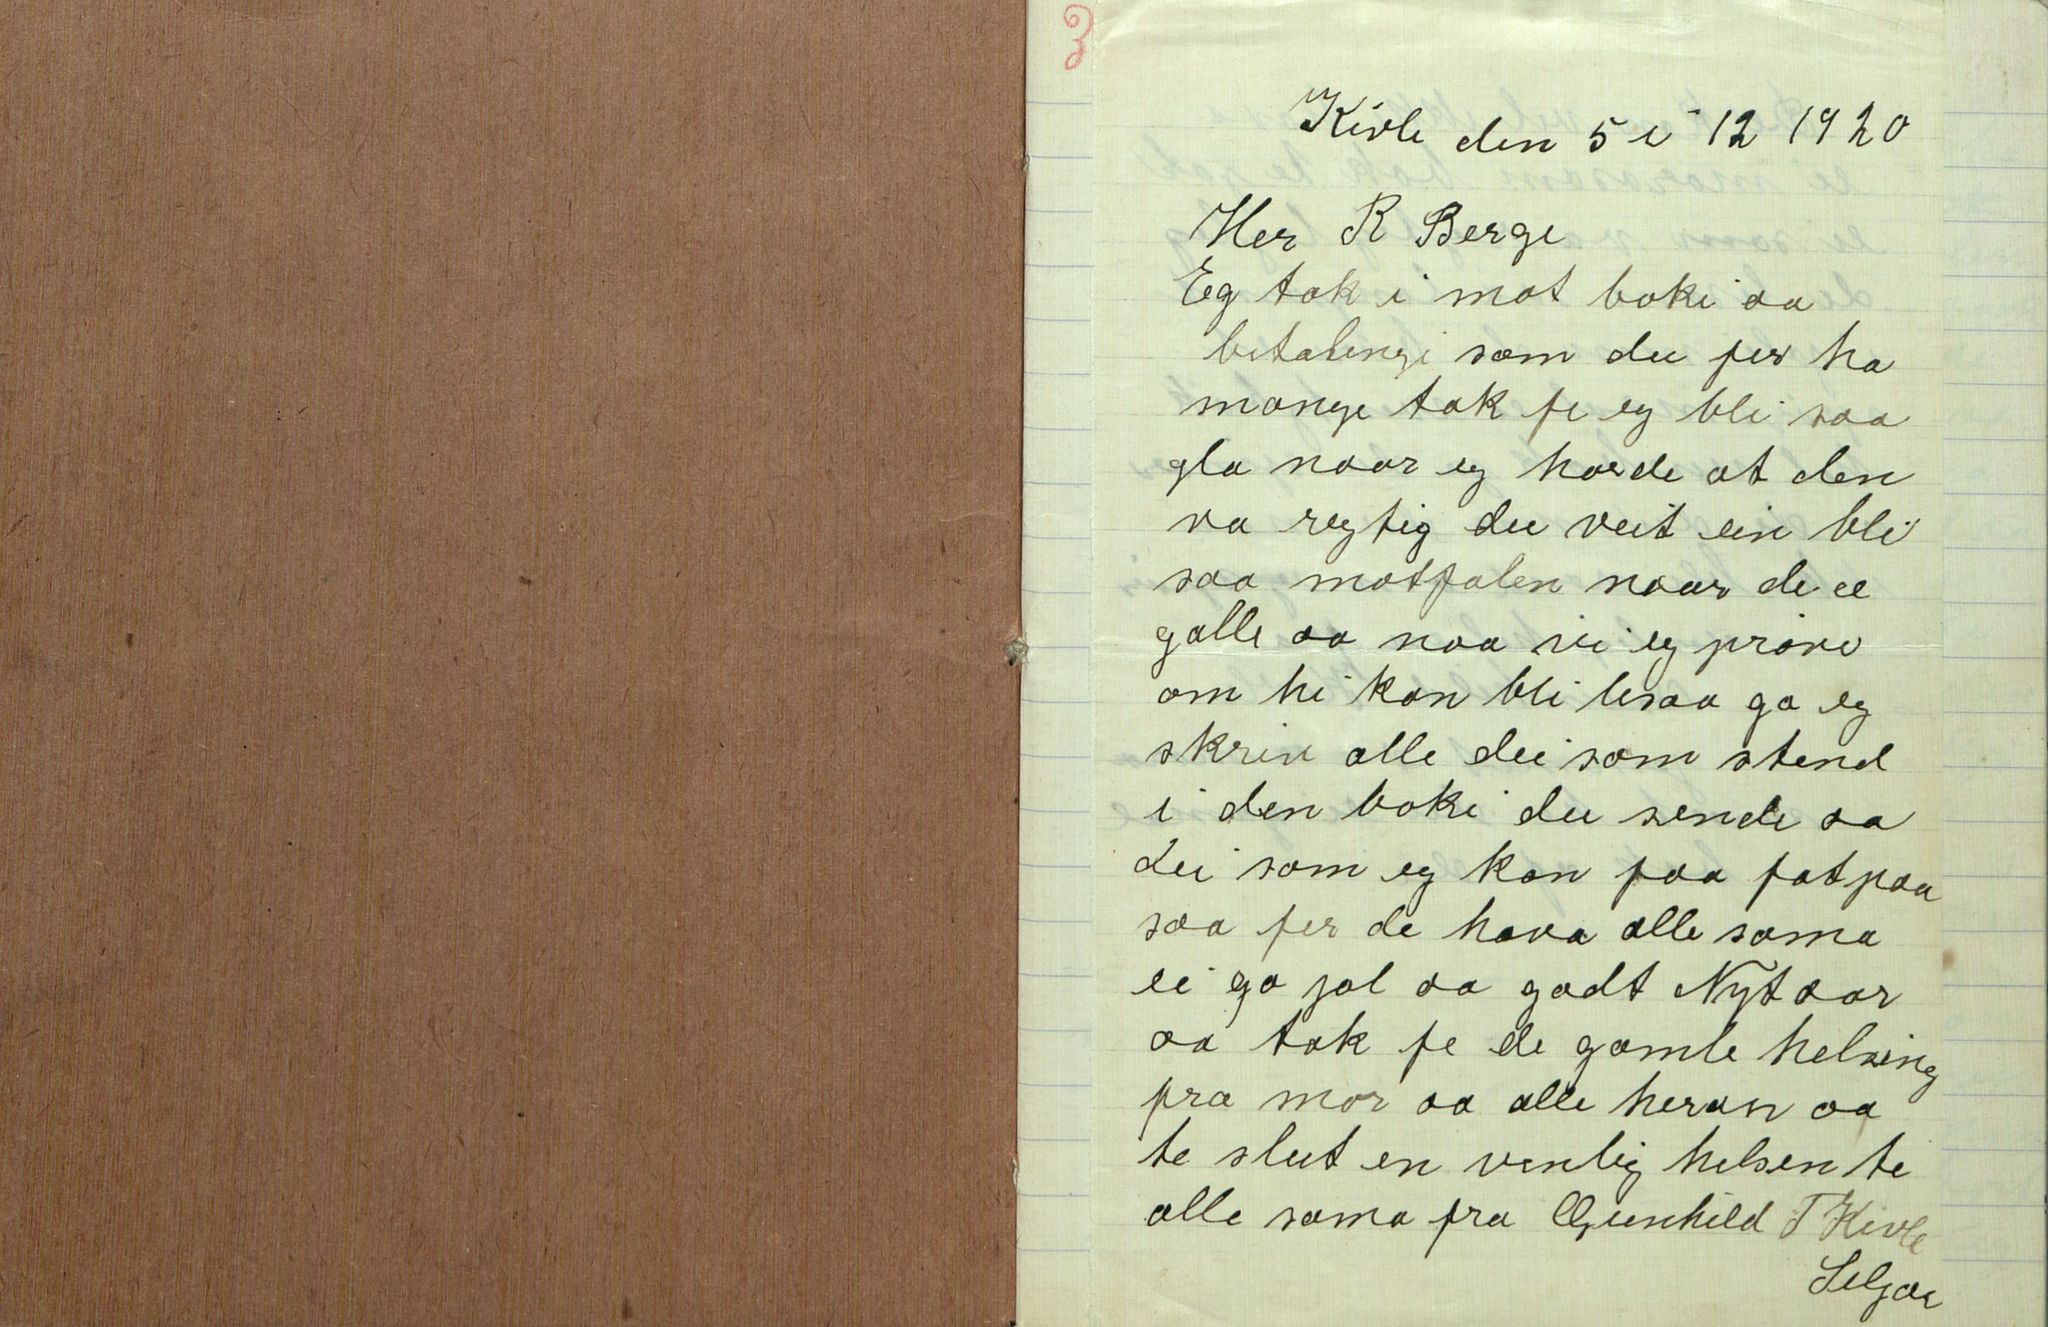 3
Kivle den 5 i 12 1920
Her R Berge
Eg tok i mot boki aa
betalingi som du fer ha
mange tak fe eg bli saa
gla naar eg horde at den
va regtig du veit ein bli
saa motfalen naar de æ
galle aa naa vi eg prøve
om hi kan bli lesaa ga eg
skriv alle dei som stend
i den boki du sende aa
dei som eg kan faa fat paa
saa fer de hava alle sama
ei go jol aa godt Nyt aar
aa tak fe de gamle helsing
fra mor aa alle heran aa
te slut en venlig helsen te
alle sama fra Gunhild T Kivle
Seljor